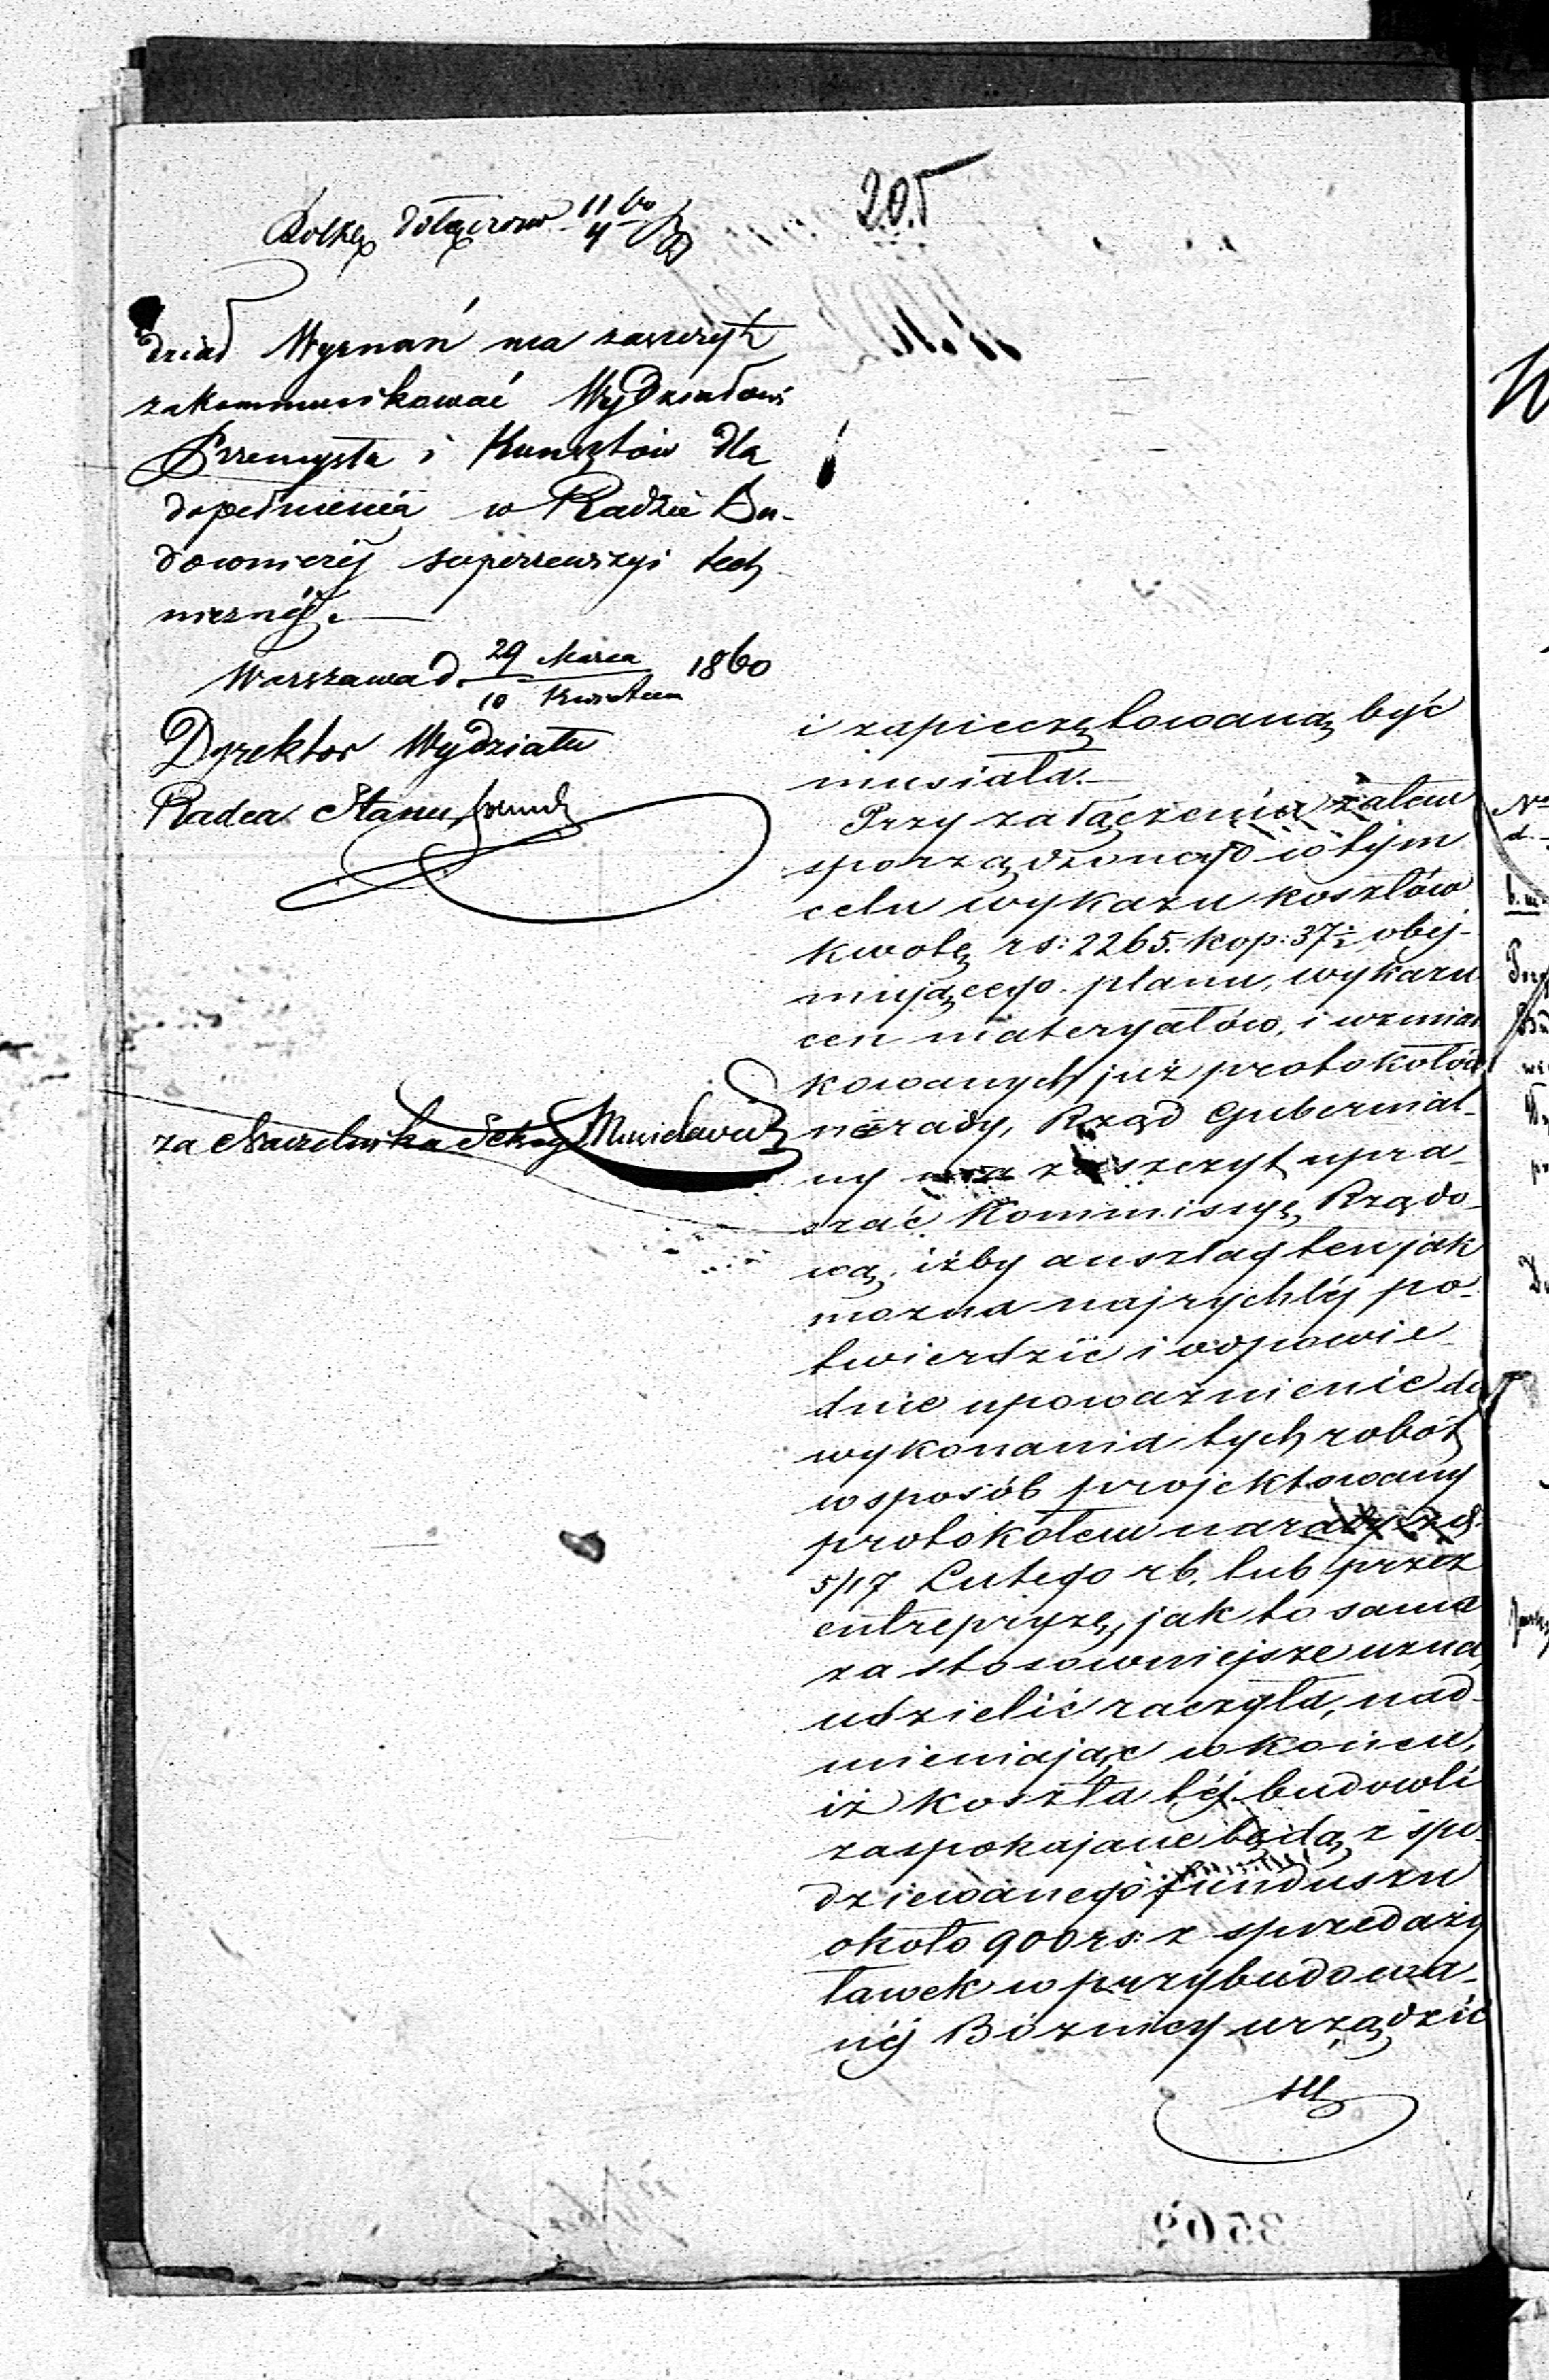 205
Rolkę dołączono 11/4 60
dział Wyznań ma zaszczyt
zakommunikować Wydziałowi
Przemysłu i Kunsztów dla
dopełnienia w Radzie Bu-
downiczéj superrewizyi tech-
nicznéj.
Warszawa d. 29 Marca / 10 Kwietnia 1860
Dyrektor Wydziału
Radca Stanu
za Naczelnika Sekcyi
i zapieczętowaną być
musiała.
Przy załączeniu zatem
sporządzonego w tym
celu wykazu kosztów
kwotę rs: 2265. kop: 37½ obej-
mującego, planu, wykazu
cen materyałów, i wzmian
kowanych już protokołów
narady, Rząd Gubernial-
ny ma zaszczyt upra-
szać Kommisyę Rządo-
wą, iżby anszlag ten jak
można najrychléj po-
twierdzić i odpowie-
dnie upoważnienie do
wykonania tych robót
w sposób projektowany
protokółem narady z d.
5/17 Lutego rb. lub przez
entrepryzę, jak to sama
za stosowniejsze uzna,
udzielić raczyła, nad-
mieniając w końcu,
iż koszta téj budowli
zaspokajane będą z spo-
dziewanego funduszu
około 900 rs: z sprzedaży
ławek w przybudowa-
néj Bóżnicy urządzić
3562